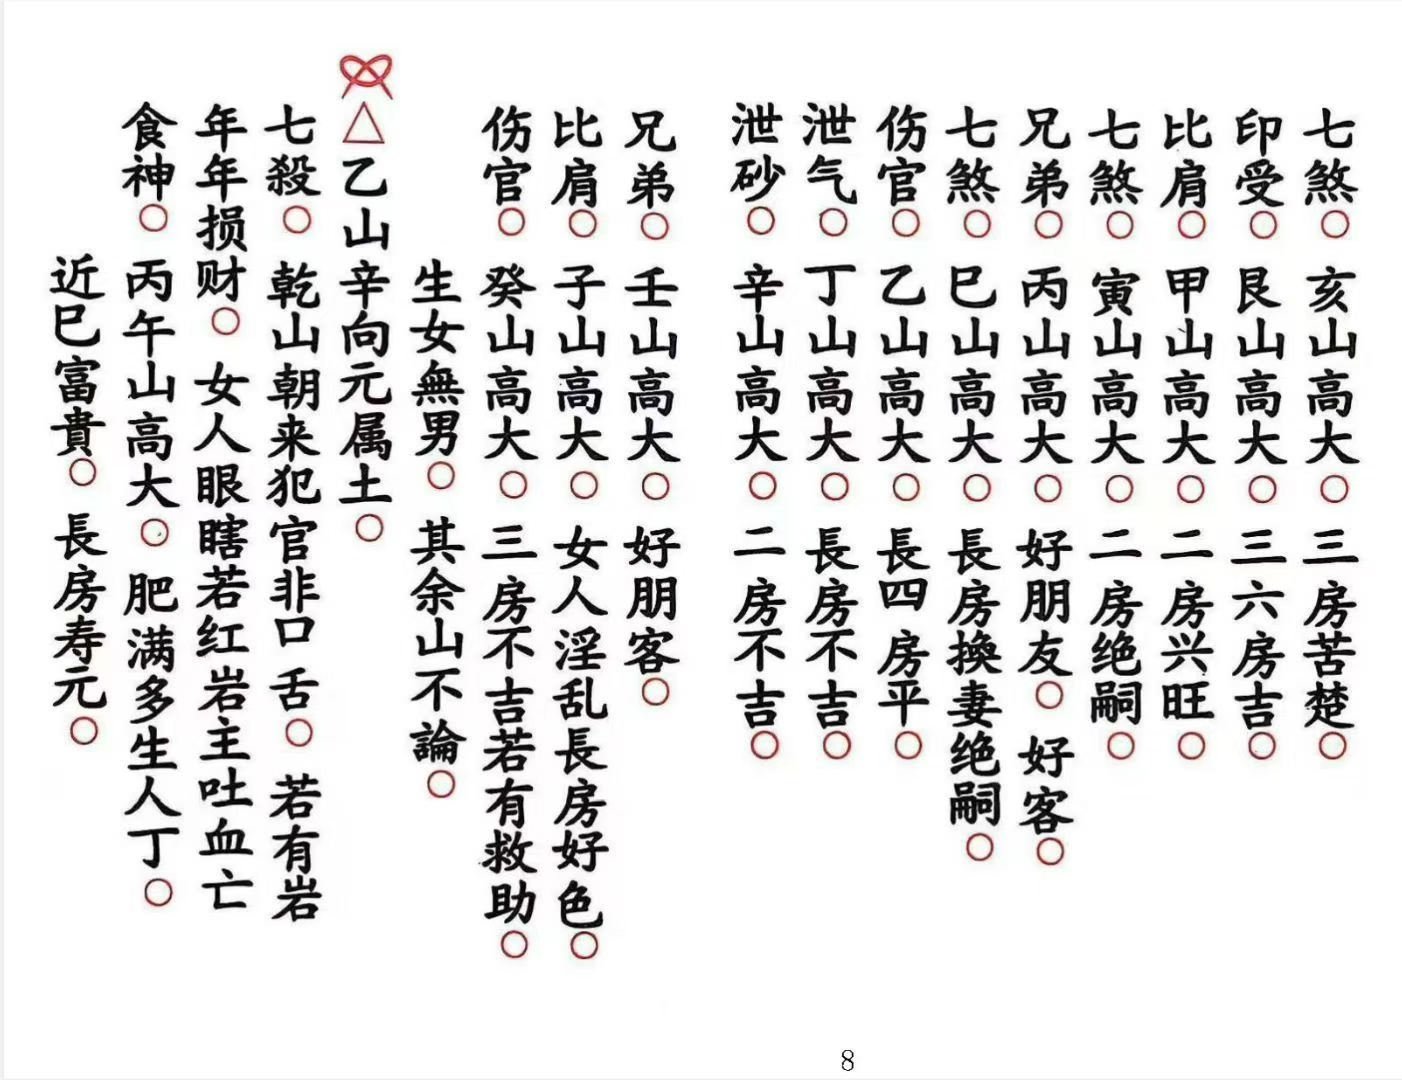 七煞○亥山高大○三房苦楚○
印受○艮山高大○三六房吉○
比肩○甲山高大○二房兴旺○
七煞○寅山高大○二房绝嗣○
兄弟○丙山高大○好朋友○好客○
七煞○巳山高大○長房換妻绝嗣○
伤官○乙山高大○長四房平○
泄气○丁山高大○長房不吉○
泄砂○辛山高大○二房不吉○
兄弟○壬山高大○好朋客○
比肩○子山高大○女人淫乱長房好色○
伤官○癸山高大○三房不吉若有救助○
生女無男○其余山不論○
△乙山辛向元属土○
七殺○乾山朝来犯官非口舌○若有岩
年年损财○女人眼瞎若红岩主吐血亡
食神○丙午山高大○肥满多生人丁○
近巳富貴○長房寿元○
8